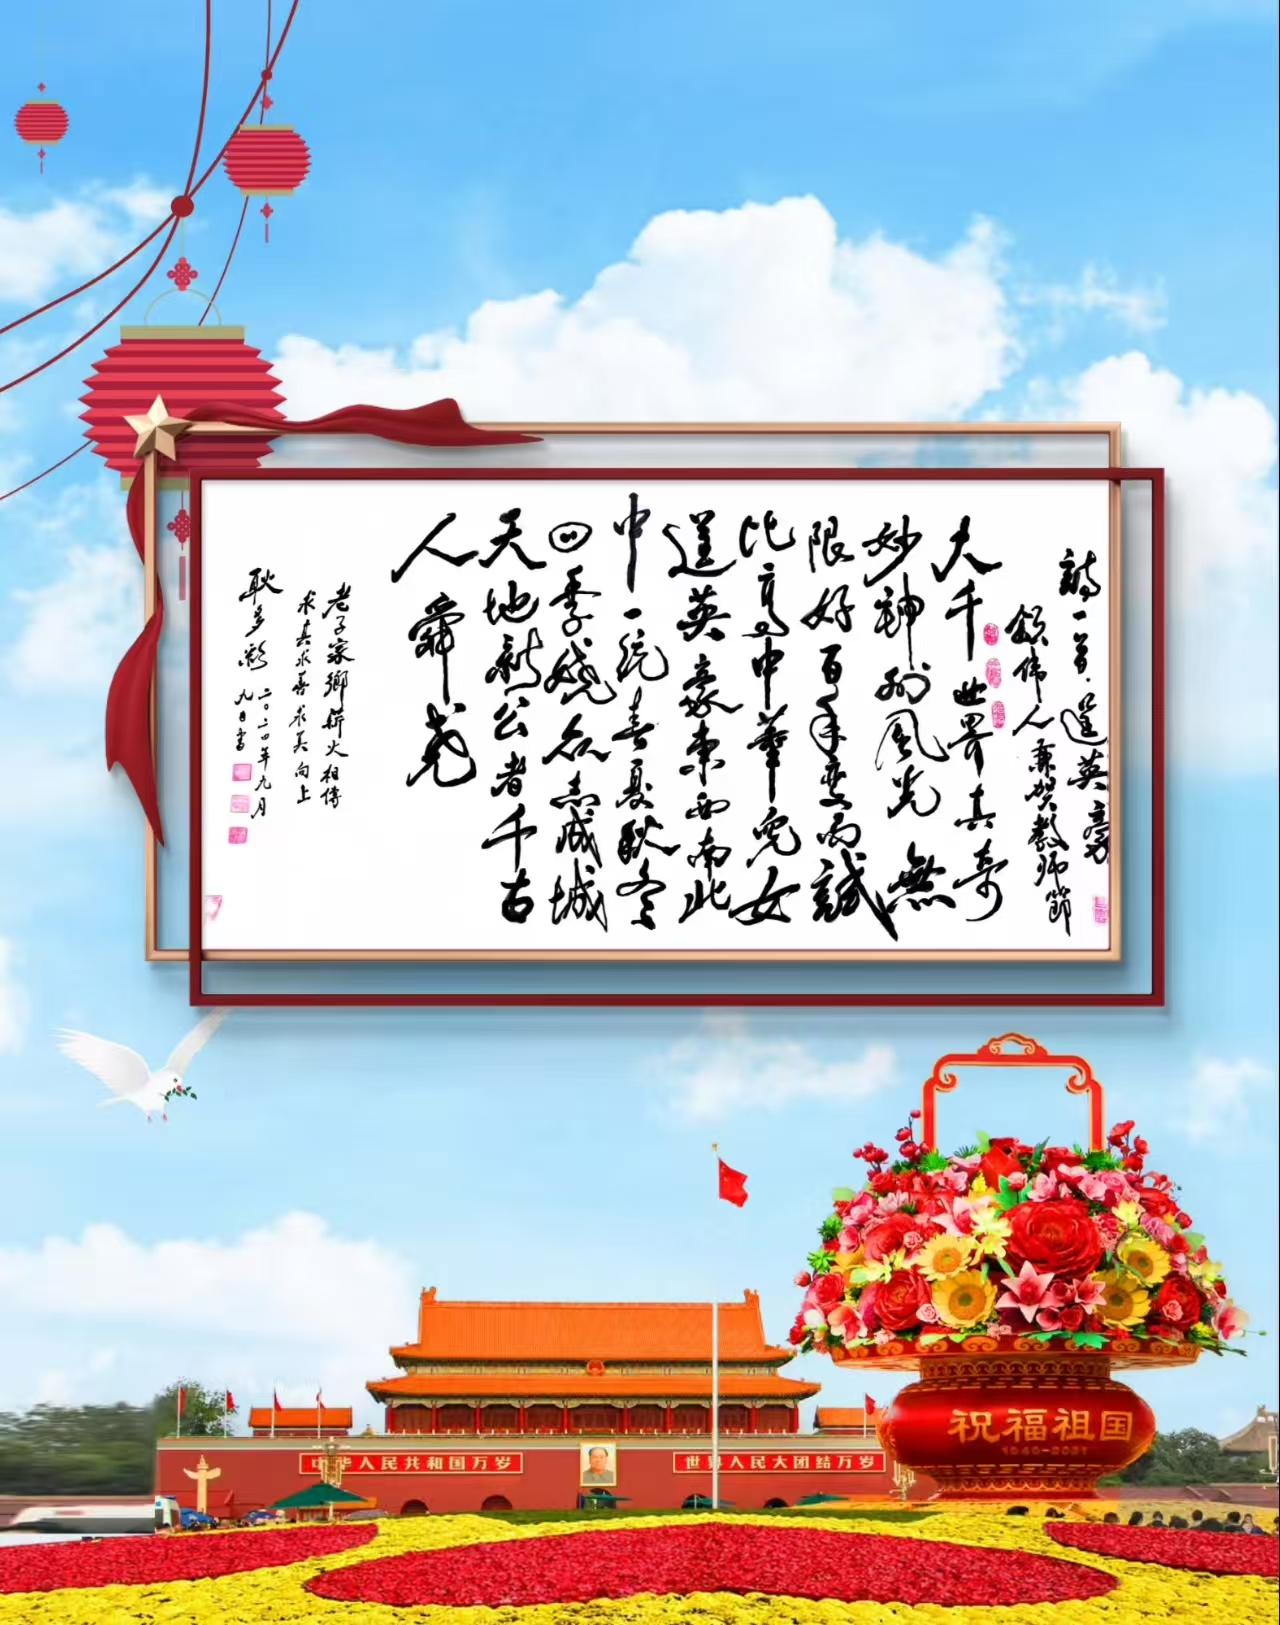 诗一首·逞英豪
颂伟人兼贺教师節
大千世界真奇
妙神州风光無
限好百年变局誠
比高中華兒女
逞英豪东西南北
中一统春夏秋冬
四季娆众志成城
天地新公者千古
人舜尧
老子家鄉薪火相傳
求真求善求美向上
耿多彩
二〇二四年九月
九日書
祝福祖国
1949-2021
中华人民共和国万岁
世界人民大团结万岁